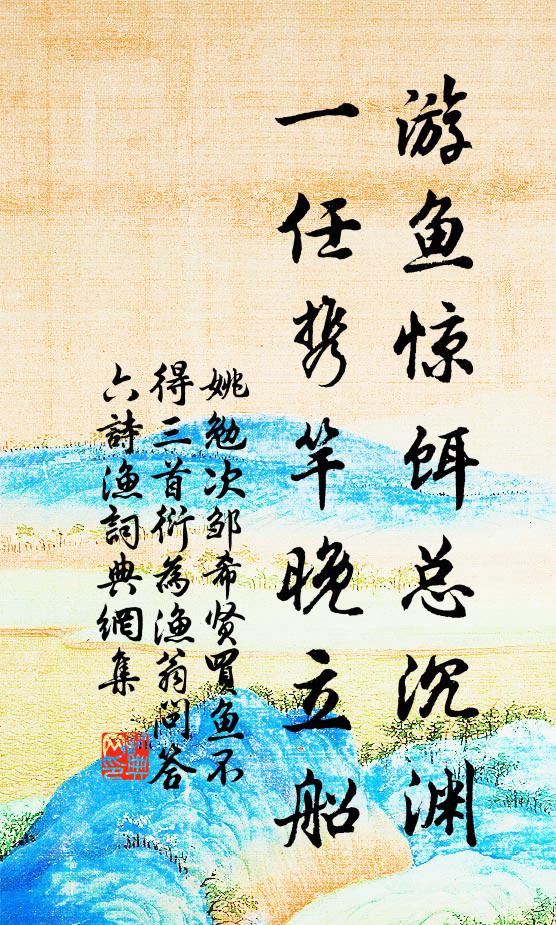 游鱼惊饵总沉渊
一任携竿晚立船
姚勉次邹希贤買鱼不
得三首衍為渔翁问答
六詩渔詞典網集